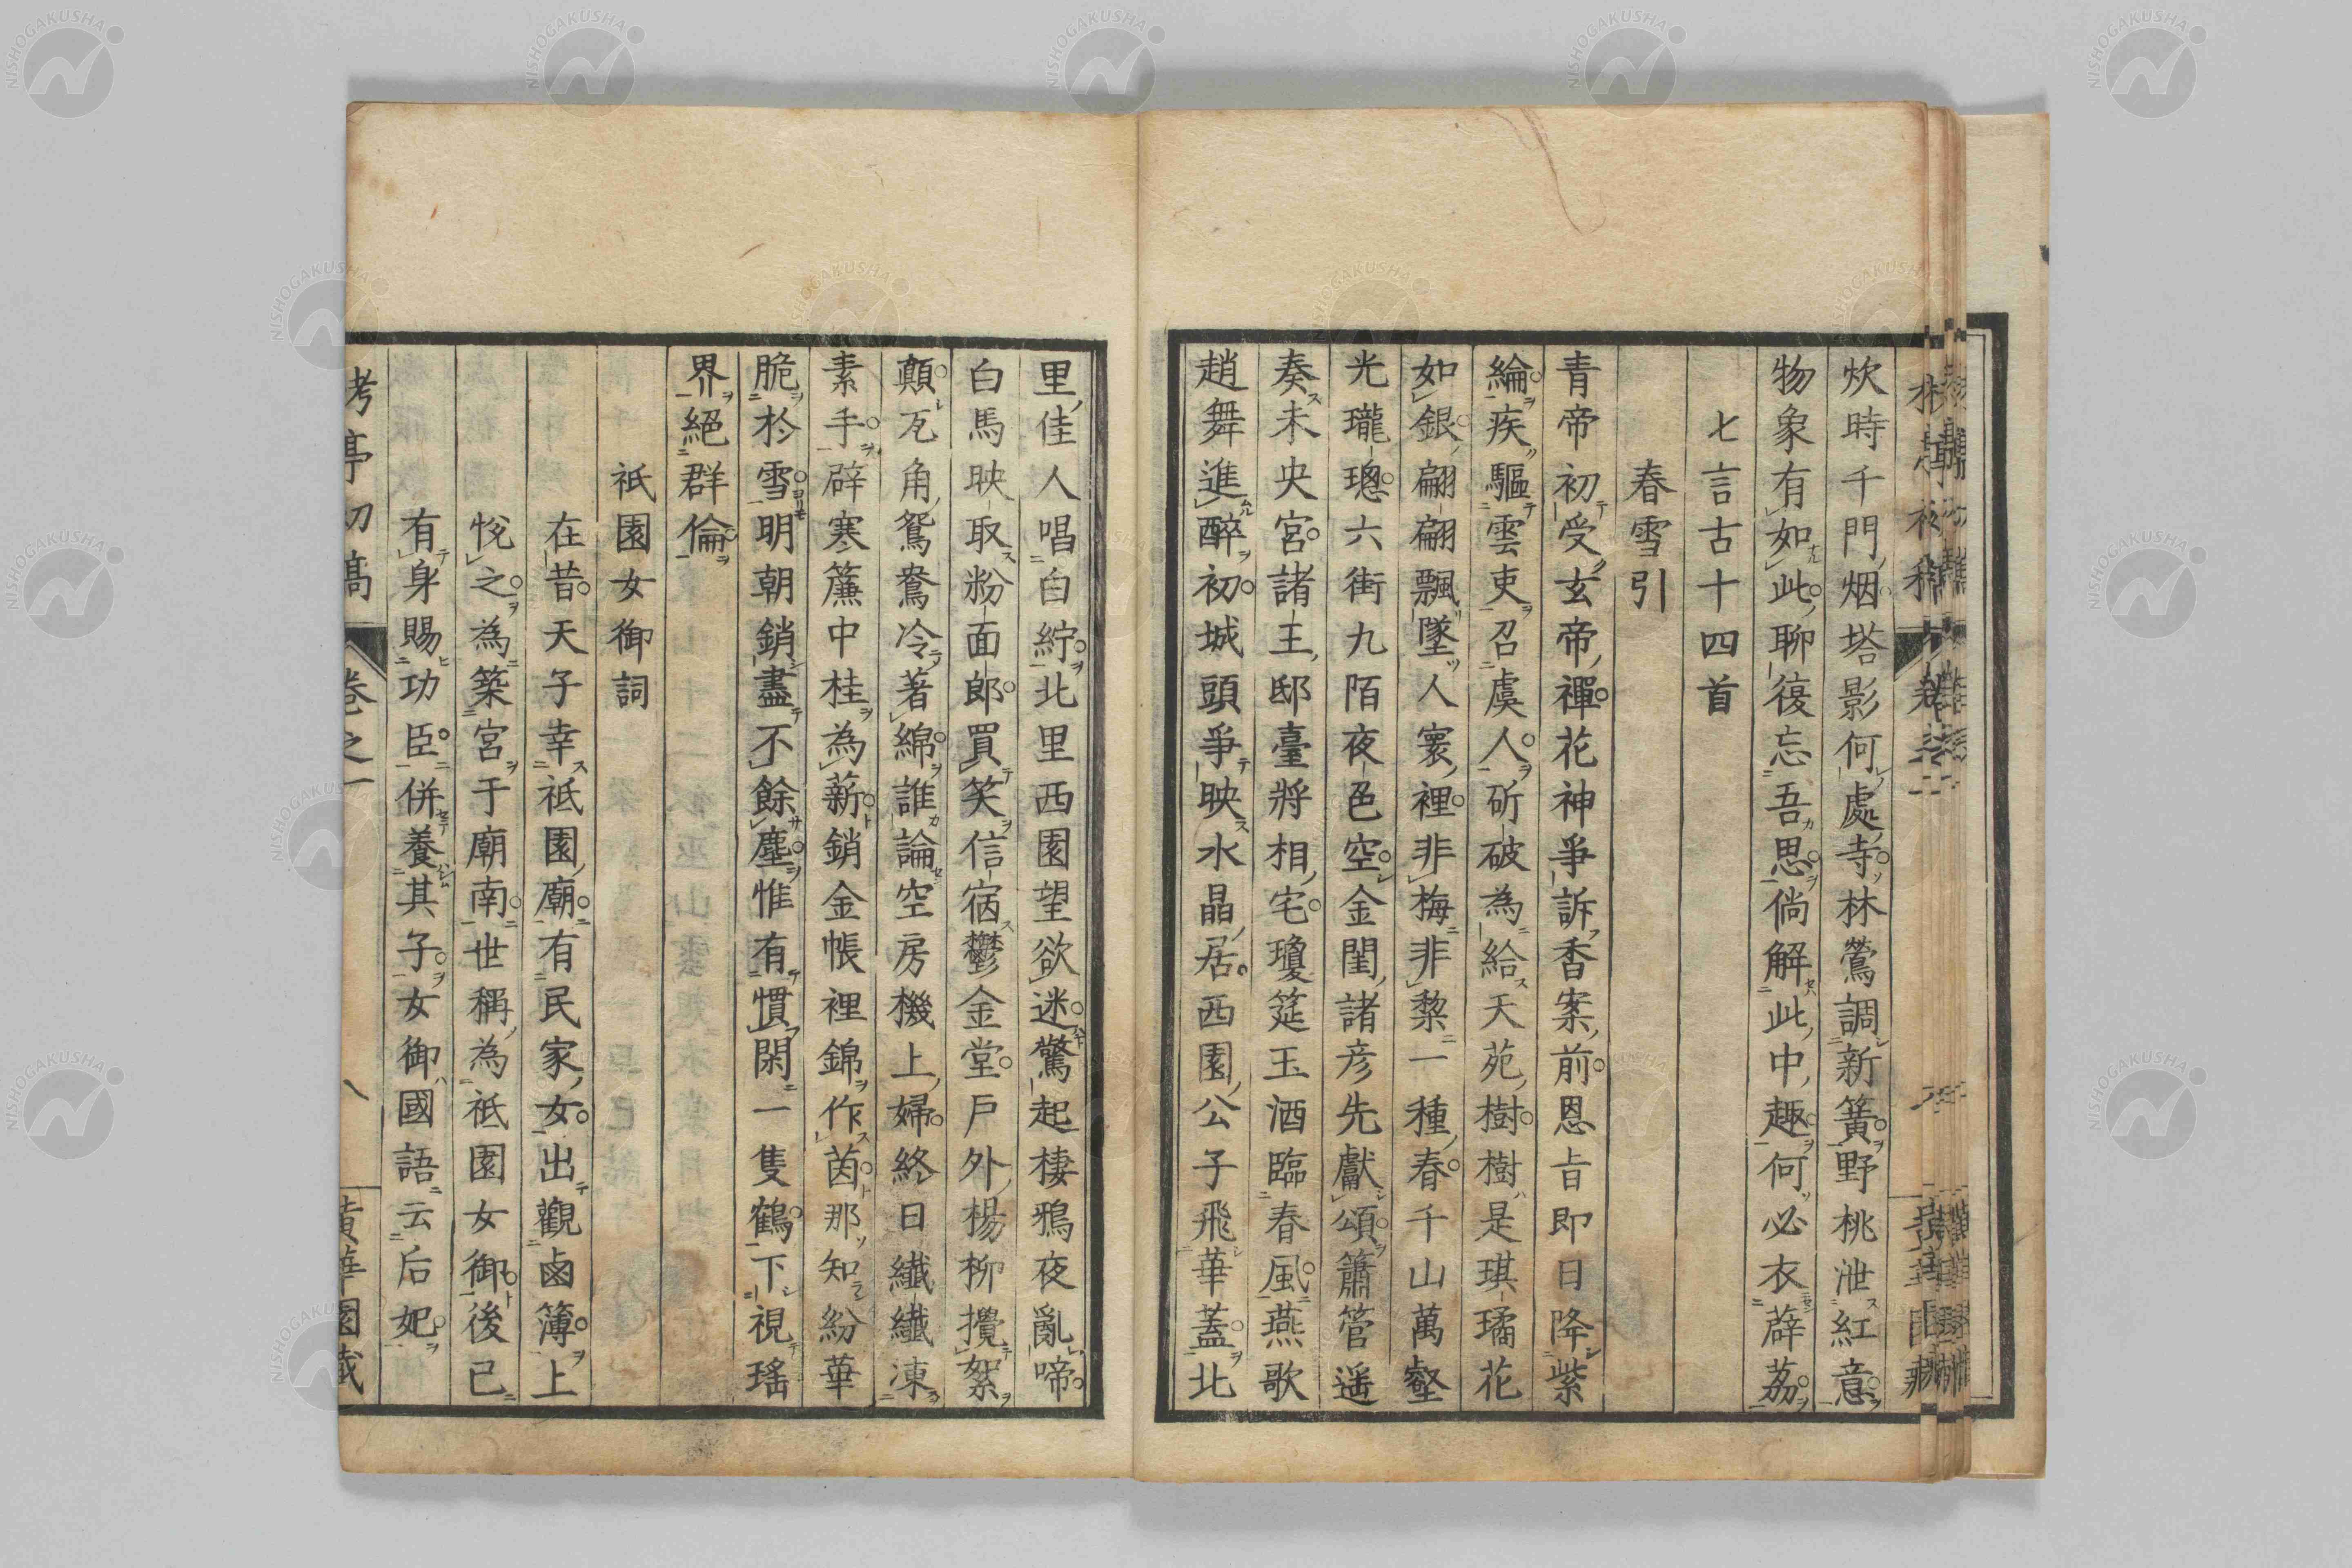 炊時千門烟塔影何處寺林鶯調新簧野桃泄紅意
物象有如此聊復忘吾思倘解此中趣何必衣薜荔
七言古十四首
春雪引
青帝初受玄帝禪花神爭訴香案前恩旨即日降紫
綸疾驅雲吏召虞人斫破為給天苑樹樹是琪璚花
如銀翩翩飄墜人寰裡非梅非黎一種春千山萬壑
光瓏璁六街九陌夜色空金閨諸彦先獻頌簫管遥
奏未央宮諸王邸臺將相宅瓊筵玉酒臨春風燕歌
趙舞進醉初城頭爭映水晶居西園公子飛華蓋北
里佳人唱白紵北里西園望欲迷驚起棲鴉夜亂啼
白馬映取粉面郎買笑信宿鬱金堂戸外楊柳攪絮
顛瓦角鴛鴦冷著綿誰論空房機上婦終日纖纖凍
素手辟寒簾中桂為薪銷金帳裡錦作茵那知紛華
脆於雪明朝銷盡不餘塵惟有慣閑一隻鶴下視瑤
界絕群倫
祇園女御詞
在昔天子幸祇園廟有民家女出觀鹵簿上
悅之為築宮于廟南世稱為祇園女御後已
有身賜功臣併養其子女御國語云后妃
亭初稿 卷之一 八 黄華園藏
NISHOGAKUSHA